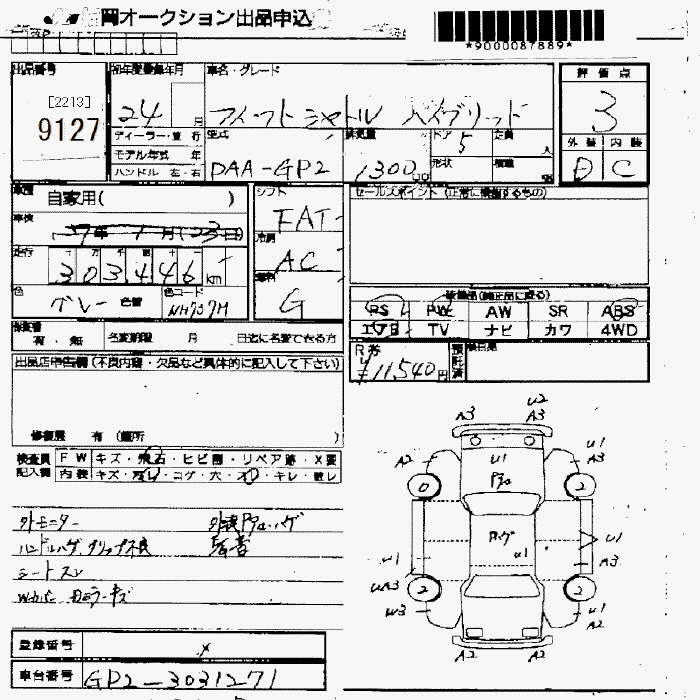 岡オークション出品申込
*9000087889*
出品番号 初年度登録年月 車名・グレード 評価点
[2213]
9127
24 月 フィットシャトル ハイブリッド 3
ディーラー・並行 型式 排気量 ドア 5 定員 人 外装 内装
モデル年式 年 形状 積載
ハンドル 左・右 DAA-GP2 1300 D C
車歴 自家用( ) シフト FAT セールスポイント(正常に機能するもの)
車検 年 月(23日) 冷房 AC
走行 十 万 千 百 十
303446km 燃料 G
色 グレー 色替 色コード NH737M
装備品(純正品に限る)
PS PW AW SR ABS
エアB TV ナビ カワ 4WD
有・無 名変期限 月 日迄に名変できる方
R券 ¥11,540円 預託済
出品店申告欄(不良内容・欠品など具体的に記入して下さい)
修復歴 有(箇所 )
検査員 FW キズ・飛石・ヒビ割・リペア跡・X要
記入欄 内装 キズ・汚レ・コゲ・穴・スレ・キレ・破レ
外モニター
ハンドルハゲ グリップ不良
シートスレ
A3 U2 A3
A2 U1 U1 A3
0 2
ハゲ U1 U1
U1 A3
UA3 2 2
W3 U1 A2
A2 A2
登録番号
車台番号 GP2-3031271